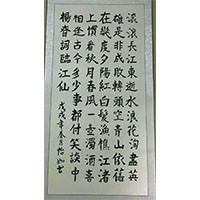 滾滾長江東逝水浪花淘盡英
雄是非成敗轉頭空青山依舊
在幾度夕陽紅白髮漁樵江渚
上慣看秋月春風一壺濁酒喜
相逢古今多少事都付笑談中
楊昚詞臨江仙
戊戌年冬月